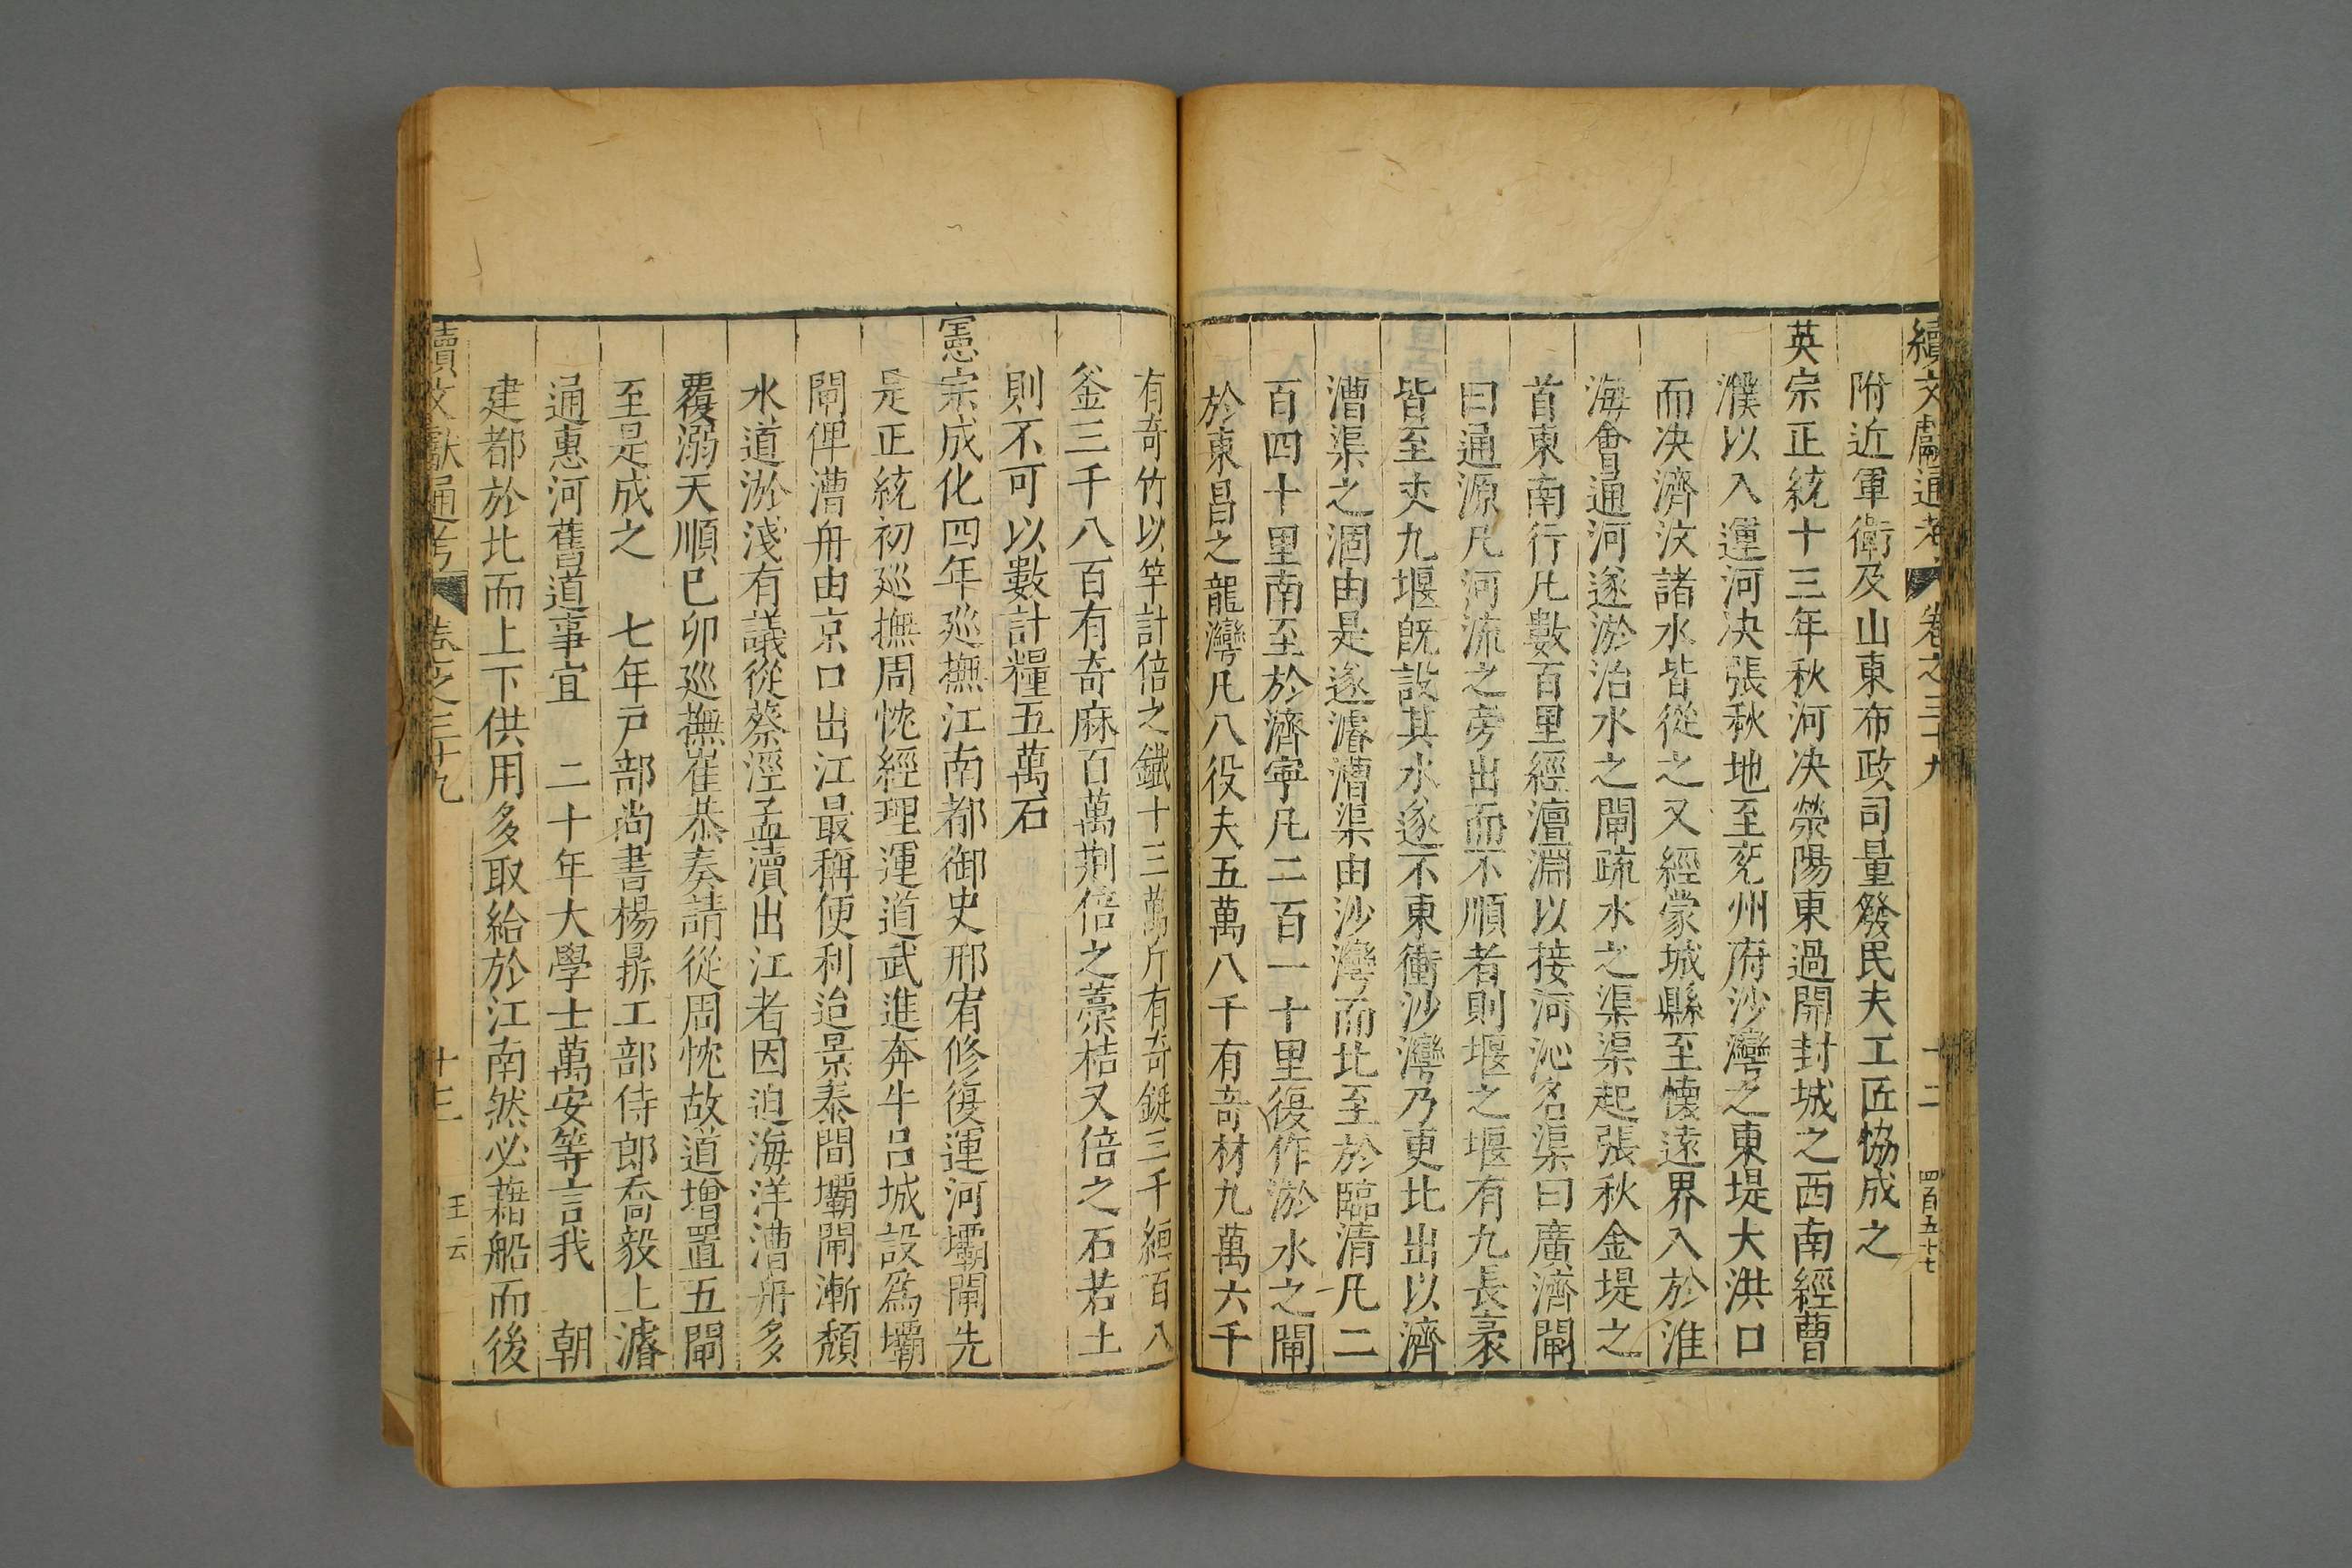 續文獻通考 卷之三十九 十二 四百五十七
附近軍衛及山東布政司量發民夫工匠協成之
英宗正統十三年秋河決滎陽東過開封城之西南經曹
濮以入運河决張秋地至兖州府沙灣之東堤大洪口
而决濟汶諸水皆從之又經蒙城縣至懷遠界入於淮
海會通河遂淤治水之閘疏水之渠渠起張秋金堤之
首東南行凡數百里經澶淵以接河沁名渠曰廣濟閘
曰通源凡河流之旁出而不順者則堰之堰有九長袤
皆至丈九堰旣設其水遂不東衝沙灣乃更北出以濟
漕渠之涸由是遂濬漕渠由沙灣而北至於臨清凡二
百四十里南至於濟寧凡二百一十里復作淤水之閘
於東昌之龍灣凡八役夫五萬八千有奇材九萬六千
有奇竹以竿計倍之鐵十三萬斤有奇鋌三千絙百八
釜三千八百有奇麻百萬荆倍之藁桔又倍之石若土
則不可以數計糧五萬石
憲宗成化四年廵撫江南都御史邢宥修復運河壩閘先
是正統初廵撫周忱經理運道武進奔牛吕城設爲壩
閘俾漕舟由京口出江最稱便利迨景泰間壩閘漸頹
水道淤淺有議從蔡涇孟瀆出江者因迫海洋漕舟多
覆溺天順巳卯廵撫崔恭奏請從周忱故道增置五閘
至是成之 七年戸部尚書楊鼎工部侍郎喬毅上濬
通惠河舊道事宜 二十年大學士萬安等言我 朝
建都於北而上下供用多取給於江南然必藉船而後
續文獻通考 卷之三十九 十三 王云